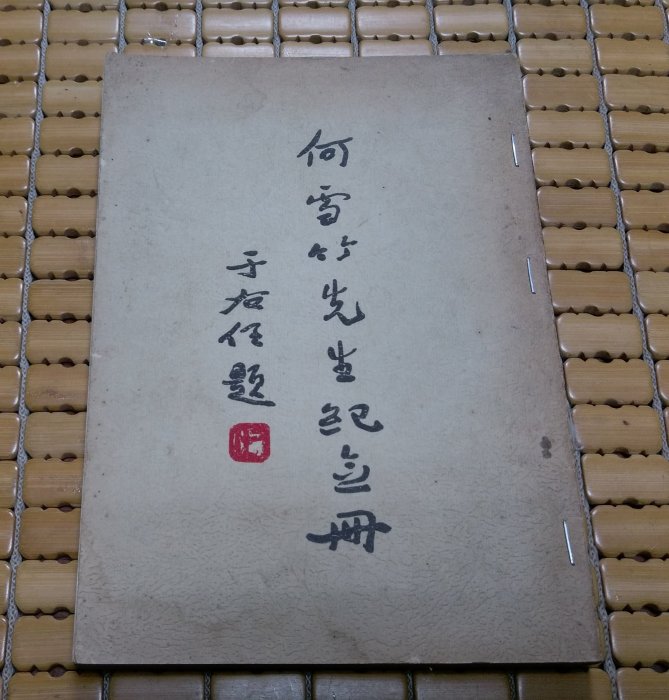 何雪竹先生紀念冊
于右任題